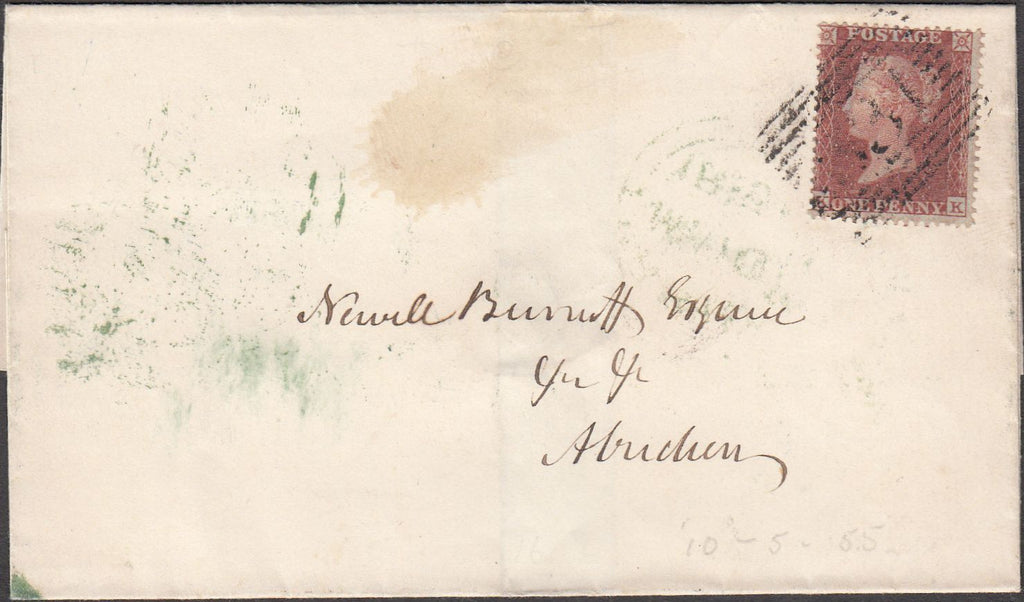 POSTAGE
ONE PENNY K
Newell Burnett Esquire
&c &c
Aberdeen
10 - 5 - 55